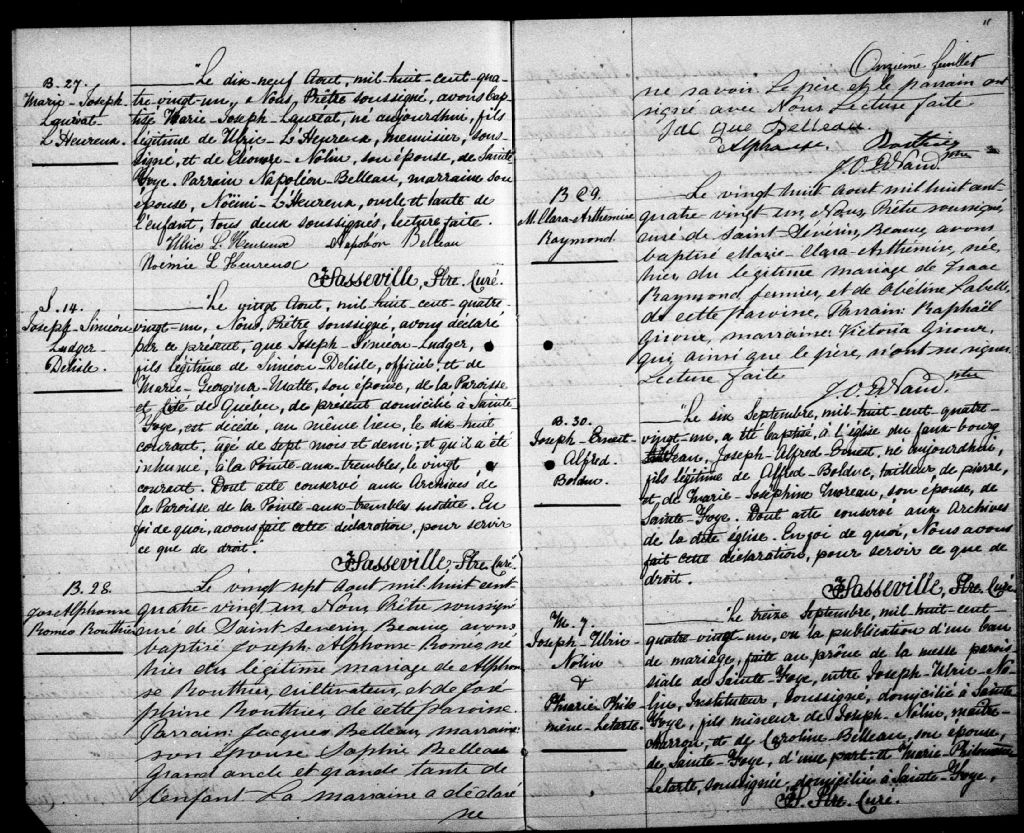 B. 27.
Marie-Joseph
Laureat
L'Heureux.
Le dix-neuf Aout, mil-huit-cent-qua-
tre-vingt-un, Nous, Prêtre soussigné, avons bap-
tisé Marie-Joseph-Laureat, né aujourdhui, fils
légitime de Ulric-L'Heureux, menuisier, sous-
signé, et de Eleonore-Nolin, son épouse, de Sainte
Foye. Parrain Napoléon-Belleau, marraine son
épouse, Noëmi-L'Heureux, oncle et tante de
l'enfant, tous deux soussignés, lecture faite.
Ulric L. Heureux Napoléon Belleau
Noémie L Heureux
F Sasseville, Ptre. Curé.
S. 14.
Joseph-Siméon
Ludger-
Delisle.
Le vingt Aout, mil-huit-cent-quatre-
vingt-un, Nous, Prêtre soussigné, avons déclaré
par ce présent, que Joseph-Siméon-Ludger,
fils légitime de Siméon-Delisle, officier, et de
Marie-Georgina-Matte, son épouse, de la Paroisse
et Cité de Québec, de présent domicilié à Sainte
Foye, est décédé, au même lieu, le dix-huit
courant, agé de sept mois et demi; et qu'il a été
inhumé, à la Pointe-aux-trembles, le vingt
courant. Dont acte conservé aux Archives de
la Paroisse de la Pointe-aux-trembles susdite. En
foi de quoi, avons fait cette déclaration, pour servir
ce que de droit.
F Sasseville, Ptre. Curé.
B. 28.
Jos. Alphonse
Romeo Routhier
Le vingt sept aout mil huit cent
quatre-vingt un Nous Prêtre soussigné
curé de Saint Severin Beauce avons
baptisé Joseph Alphonse-Roméo, né
hier du légitime mariage de Alphon
se Routhier, cultivateur, et de José-
phine Routhier, de cette paroisse
Parrain: Jacques Belleau, marraine:
son épouse Sophie Belleau
Grand oncle et grande tante de
l'enfant La marraine a déclaré
ne
Onzième feuillet
ne savoir. Le père et le parrain ont
signé avec Nous Lecture faite
Jac que Belleau
Alphonse Routhier
J.O. Ptre
B 29.
M. Clara-Arthemire
Raymond.
Le vingt huit aout mil huit cent
quatre vingt un, Nous, Prêtre soussigné,
curé de Saint Severin, Beauce, avons
baptisé Marie-Clara-Arthémire, née
hier, du légitime mariage de Isaac
Raymond, fermier, et de Abeline Labelle
de cette paroisse. Parrain: Raphaël
Giroux, marraine: Victoria Giroux,
qui, ainsi que le père, n'ont su signer
Lecture faite
J.O. Ptre
B. 30.
Joseph-Ernest
Alfred.
Bolduc.
Le six Septembre, mil-huit-cent-quatre-
vingt-un, a été baptisé, à l'église du faux-bourg
Jean, Joseph-Alfred-Ernest, né aujourdhui,
fils légitime de Alfred-Bolduc, tailleur de pierre,
et de Marie-Joséphine Moreau, son épouse, de
Sainte-Foye. Dont acte conservé aux Archives
de la dite église. En foi de quoi, Nous avons
fait cette déclaration, pour servir ce que de
droit.
F Sasseville, Ptre. Curé
M. 7.
Joseph-Ulric-
Nolin
&
Marie Philo-
mène-Letarte.
Le treize Septembre, mil-huit-cent-
quatre vingt-un, vu la publication d'un ban
de mariage, faite au prône de la messe parois-
siale de Sainte-Foye, entre Joseph-Ulric-No-
lin, Instituteur, soussigné, domicilié à Sainte
Foye, fils mineur de Joseph-Nolin, maître-
charron, et de Caroline-Belleau, son épouse,
de Sainte-Foye, d'une part et Marie-Philomène
Letarte, soussignée, domiciliée à Sainte-Foye,
F. S. Ptre. Curé.